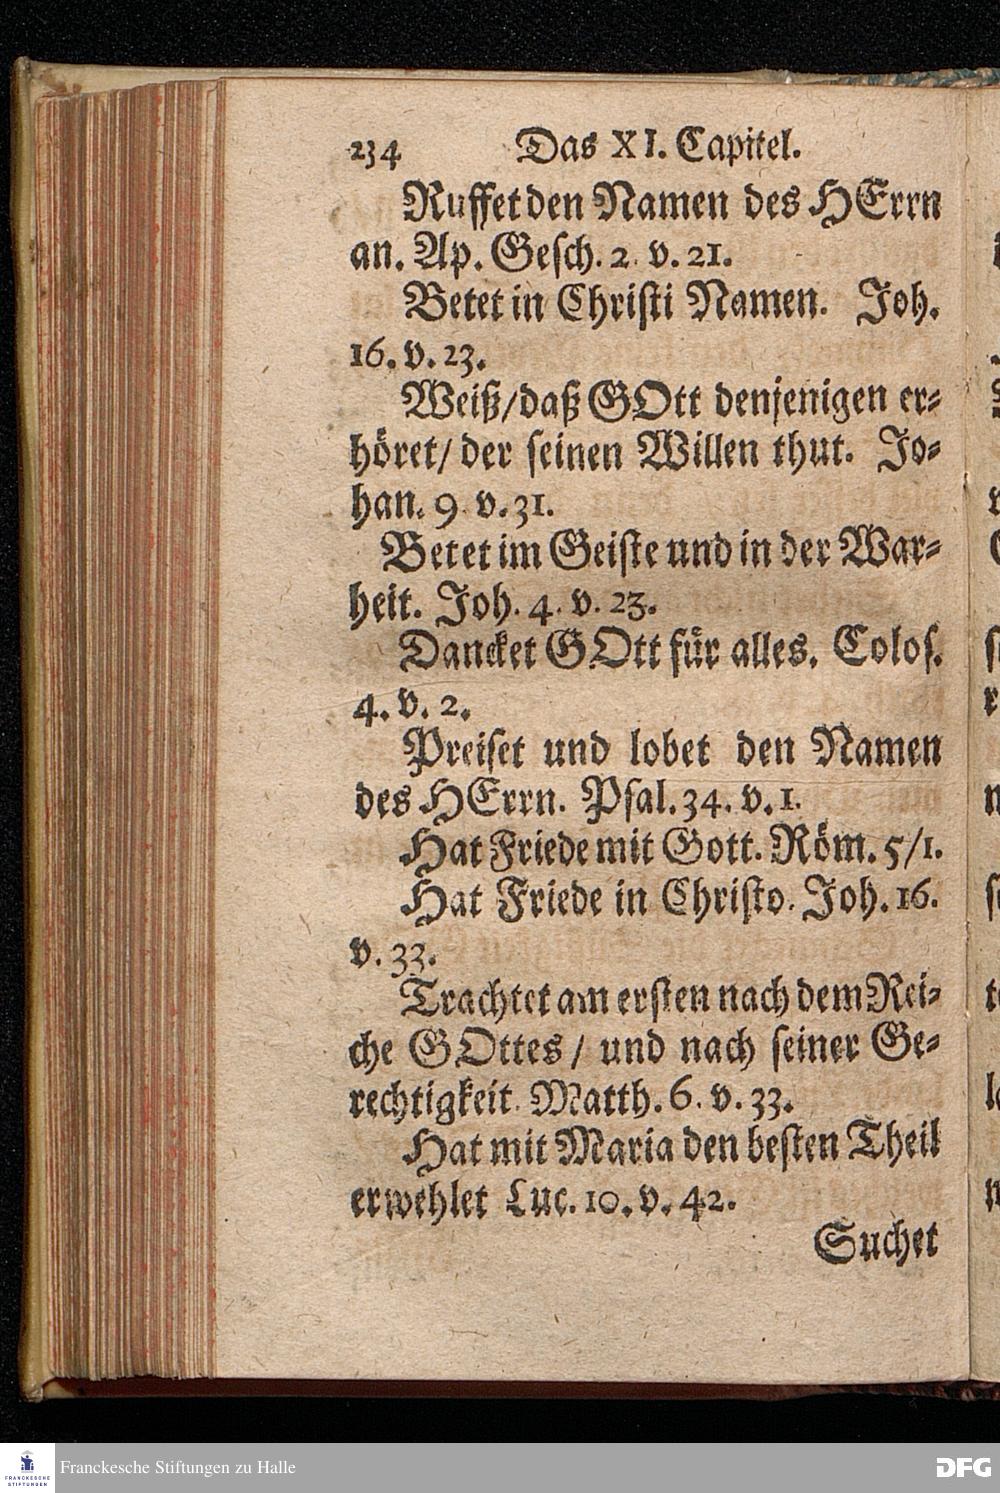 234 Das XI. Capitel.
Ruffet den Namen des HErrn
an. Ap. Gesch. 2. v. 21.
Betet in Christi Namen. Joh.
16. v. 23.
Weiß/daß GOtt denjenigen er-
höret/ der seinen Willen thut. Jo-
han. 9. v. 31.
Betet im Geiste und in der War-
heit. Joh. 4. v. 23.
Dancket GOtt für alles. Colos.
4. v. 2.
Preiset und lobet den Namen
des HErrn. Psal. 34. v. 1.
Hat Friede mit Gott. Röm. 5/1.
Hat Friede in Christo. Joh. 16.
v. 33.
Trachtet am ersten nach dem Rei-
che GOttes / und nach seiner Ge-
rechtigkeit. Matth. 6. v. 33.
Hat mit Maria den besten Theil
erwehlet Luc. 10. v. 42.
Suchet
FRANCKESCHE
STIFTUNGEN
Franckesche Stiftungen zu Halle
DFG